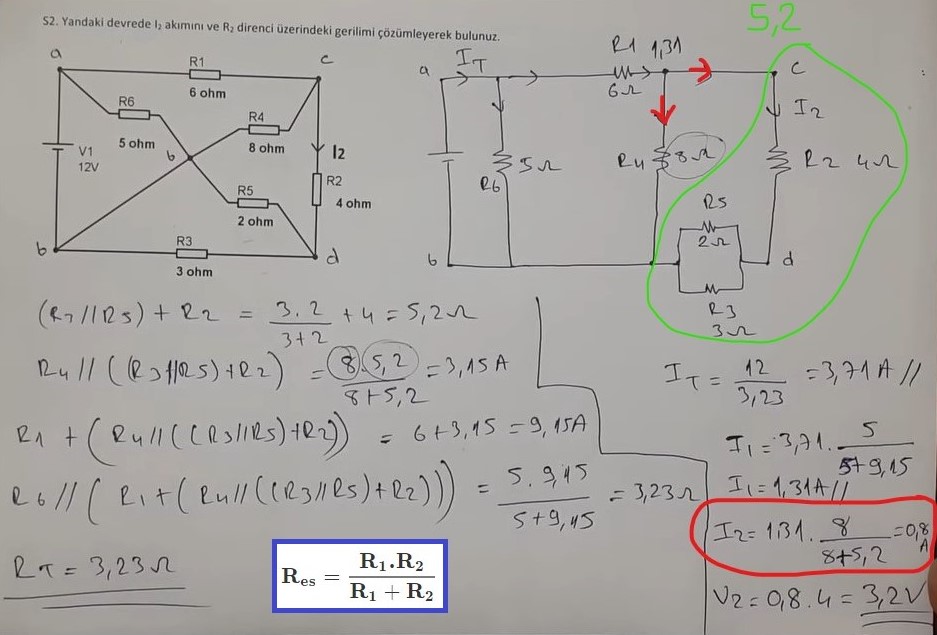 S2. Yandaki devrede I₂ akımını ve R₂ direnci üzerindeki gerilimi çözümleyerek bulunuz.
5,2
a
R1
6 ohm
c
R6
5 ohm
R4
8 ohm
V1
12V
b
I2
R2
4 ohm
R5
2 ohm
b
R3
3 ohm
d
a
I_T
R1
1,31
6Ω
c
I2
R6
5Ω
R4
8Ω
R2 4Ω
R5
2Ω
b
d
R3
3Ω
(R3//R5) + R2 = 3.2 / 3+2 + 4 = 5,2Ω
R4 // ((R3//R5)+R2) = 8.5,2 / 8+5,2 = 3,15A
R1 + (R4//((R3//R5)+R2)) = 6+3,15 = 9,15A
R6 // (R1+(R4//((R3//R5)+R2))) = 5.9,15 / 5+9,15 = 3,23Ω
R_T = 3,23Ω
R_es = R₁.R₂ / R₁ + R₂
I_T = 12 / 3,23 = 3,71A //
I1 = 3,71 . 5 / 5+9,15
I1 = 1,31A //
I2 = 1,31 . 8 / 8+5,2 = 0,8 A
V2 = 0,8 . 4 = 3,2V